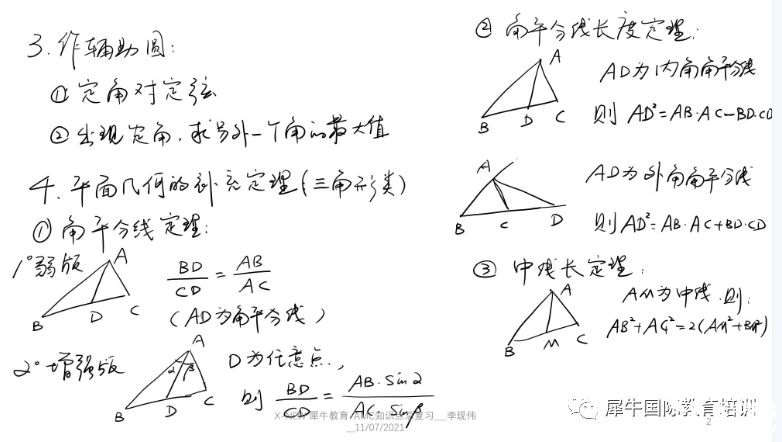 3. 作辅助圆:
① 定角对定弦
② 出现定角,求另外一个角的最大值
4. 平面几何的补充定理(三角形类)
① 角平分线定理:
1° 弱版
A
B D C
BD/CD = AB/AC
(AD为角平分线)
2° 增强版
A
α β
B D C
D为任意点,
则 BD/CD = AB·sinα/AC·sinβ
② 角平分线长度定理:
A
B D C
AD为内角角平分线
则 AD²=AB·AC-BD·CD
A
B C D
AD为外角角平分线
则AD²=AB·AC+BD·CD
③ 中线长定理:
A
B M C
AM为中线,则:
AB²+AC²=2(AM²+BM²)
犀牛教育
复习__李现伟
__11/07/2021
犀牛国际教育培训
2